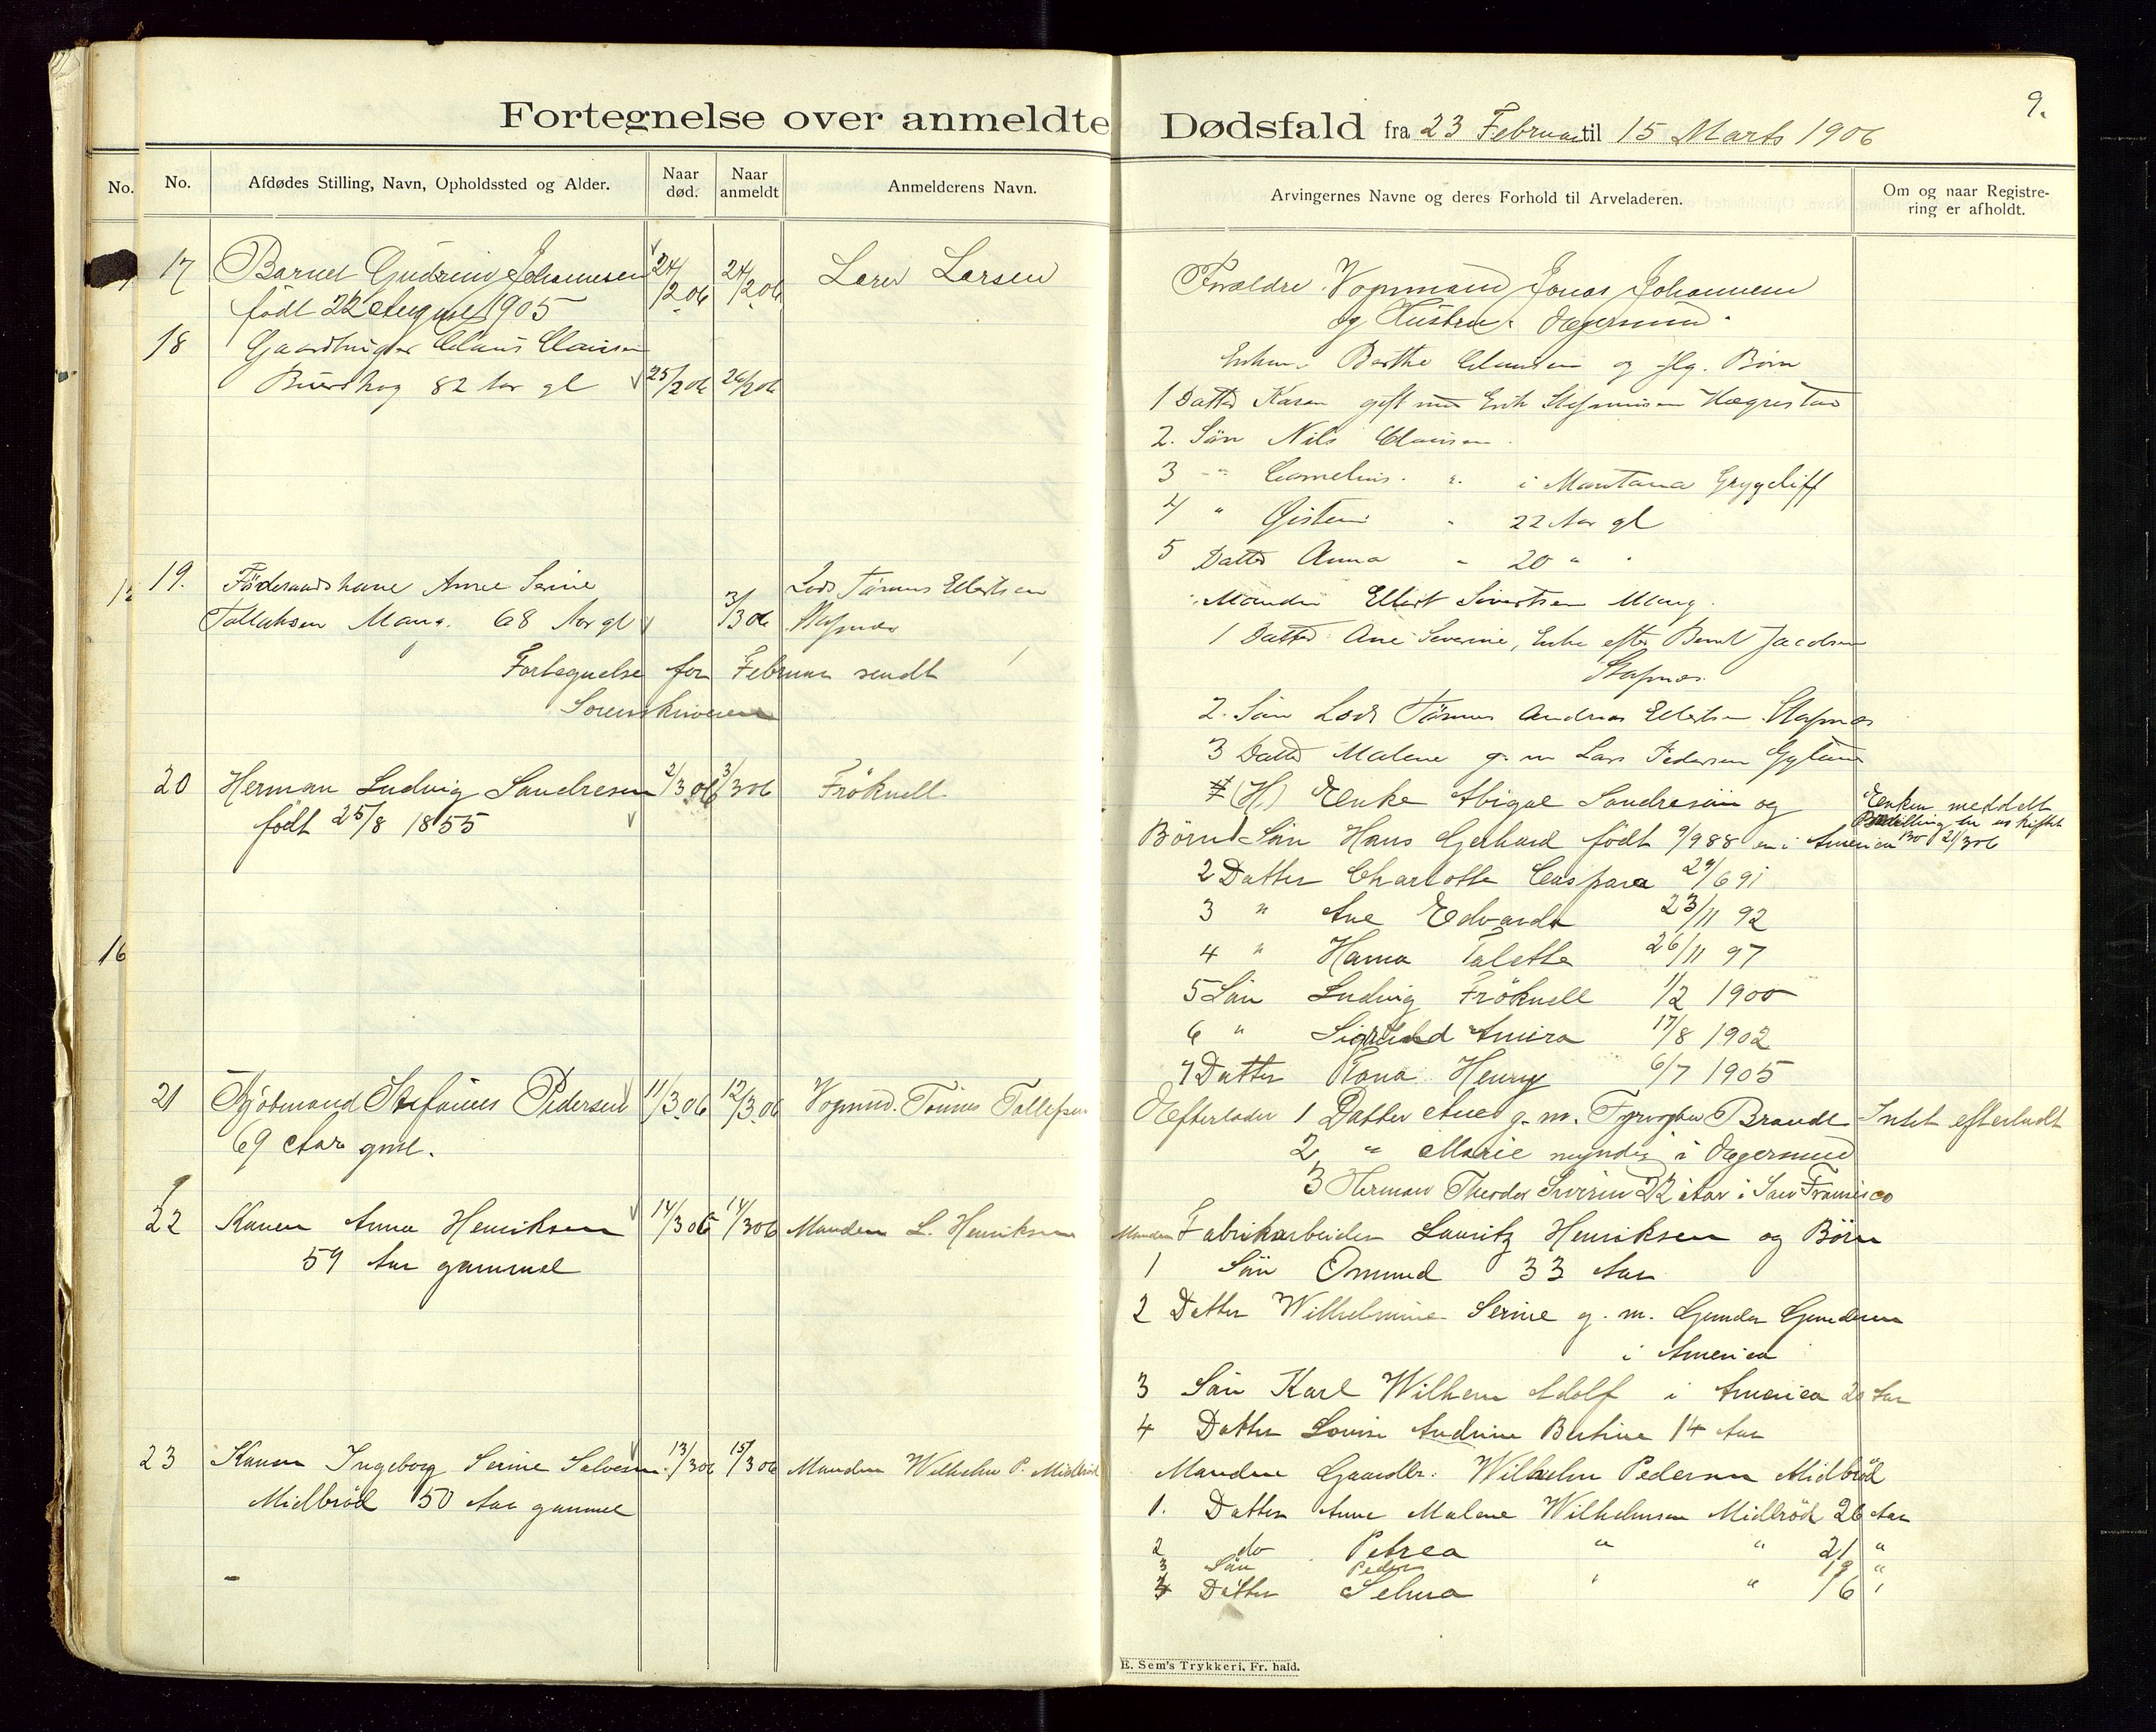 9.
Fortegnelse over anmeldte Dødsfald fra 23 Februar til 15 Marts 1906
No. No. Afdødes Stilling, Navn, Opholdssted og Alder. Naar død. Naar anmeldt Anmelderens Navn. Arvingernes Navne og deres Forhold til Arveladeren. Om og naar Registrering er afholdt.
17 Barnet Gudrun Johannesen 24/2 06 24/2 06 Larsen
født 22 August 1905
Forældre Vognmand Jonas Johannesen
og Hustru Egersund
18 Gaardbruger Claus Clausen
82 Aar gl 25/2 06 26/2 06
Berthe Clausen og flg. Børn
1 Datter Karen gift med Erik Hægrestad
2. Sön Nils Clausen
3 " Cornelius " i Montana
4 " " 22 Aar gl
5 Datter Anna " 20 "
19. Föderaadskone Anne Serine
Tollaksen Mong. 68 Aar gl 3/3 06 Lods Tönnes Ellertsen
Stapnæs
Manden Ellert Sivertsen Mong.
1 Datter Ane Severine, Enke efter Bernt Jacobsen
Stapnæs.
2. Sön Lods Tönnes Andreas Ellertsen Stapnæs
3 Datter Malene g. m Lars Pedersen
Fortegnelse for Februar sendt
Sorenskriveren
20 Herman Ludvig Sandresen 2/3 06 3/3 06 Fröknell
født 25/8 1855
(H) Enke Abigael Sandresen og
Børn 1 Sön Hans Gerhard født 9/9 88 i America
Enken meddelt
Bevilling til uskiftet
Bo 21/3 06
2 Datter Charlotte Caspara 29/6 91
3 " Ane Edvarda 23/11 92
4 " Hanna Talette 26/11 97
5 Sön Ludvig Fröknell 1/2 1900
6 " Sigvald Amira 17/8 1902
7 Datter Rona Henry 6/7 1905
21 Kjöbmand Stefanus Pedersen 11/3 06 12/3 06 Vognmd. Tönnes Tollefsen
69 Aar gml.
Efterlader 1 Datter Ane g. m. Fyrvogter Brandt Intet efterladt
2 " Marie myndig i Egersund
3 Herman Theodor 22 Aar i San Fransisco
22 Konen Anna Henriksen 14/3 06 14/3 06 Manden L. Henriksen
59 Aar gammel
Manden Fabrikarbeider Lauritz Henriksen og Börn
1 Sön Omund 33 Aar
2 Datter Wilhelmine Serine g. m. Gunder Gundersen
i America
3 Sön Karl Wilhem Adolf i America 20 Aar
4 Datter Lovise Andrine Bertine 14 Aar
23 Konen Ingeborg Serine Salvesen 13/3 06 15/3 06 Manden Wilhelm P. Midbröd
Midbröd 50 Aar gammel
Manden Gaardbr. Wilhelm Pedersen Midbröd
1. Datter Anne Malene Wilhelmsen Midbröd 26 Aar
2 do Petrea " " 21 "
3 Sön Peder 19 "
4 Datter Selma " " 16 "
16
E. Sem's Trykkeri, Fr. hald.